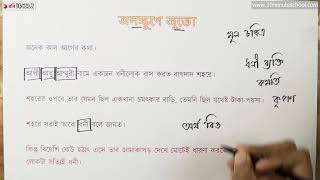 www.10minuteschool.com
জলস্তূপে জুতো
মূল চরিত্র
অনেক কাল আগের কথা।
ধনী ব্যক্তি
আলী আবু আম্মুরী নামে একজন ধনীলোক বাস করত বাগদাদ শহরে।
কমতি
শহরের ওপরে তার যেমন ছিল একখানা চমৎকার বাড়ি, তেমনি ছিল যথেষ্ট টাকা-পয়সা।
কৃপণ
অর্থ বিত্ত
শহরে সবাই তাকে ধনী বলে জানত।
কিন্তু বিদেশি কেউ হঠাৎ এসে তার জামাকাপড় দেখে মোটেই ধারণা করতে
লোকটা সত্যিই ধনী।